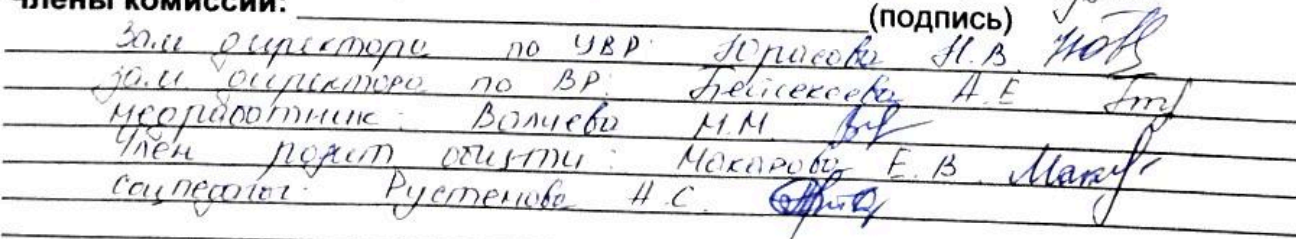 Члены комиссии:
(подпись)
Зам директора по УВР: Юрасова Н.В.
Зам. директора по ВР: Бейсекеева А.Е
Медработник: Валиева М.М.
Член родит общ-ти: Макарова Е.В.
соцпедагог: Рустемова А.С.